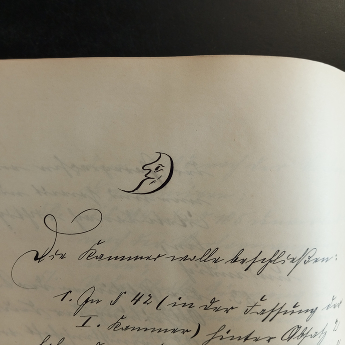 Die Kammer wolle beschließen:
1. In § 42 (in der Fassung der
I. Kammer) hinter Absatz 2